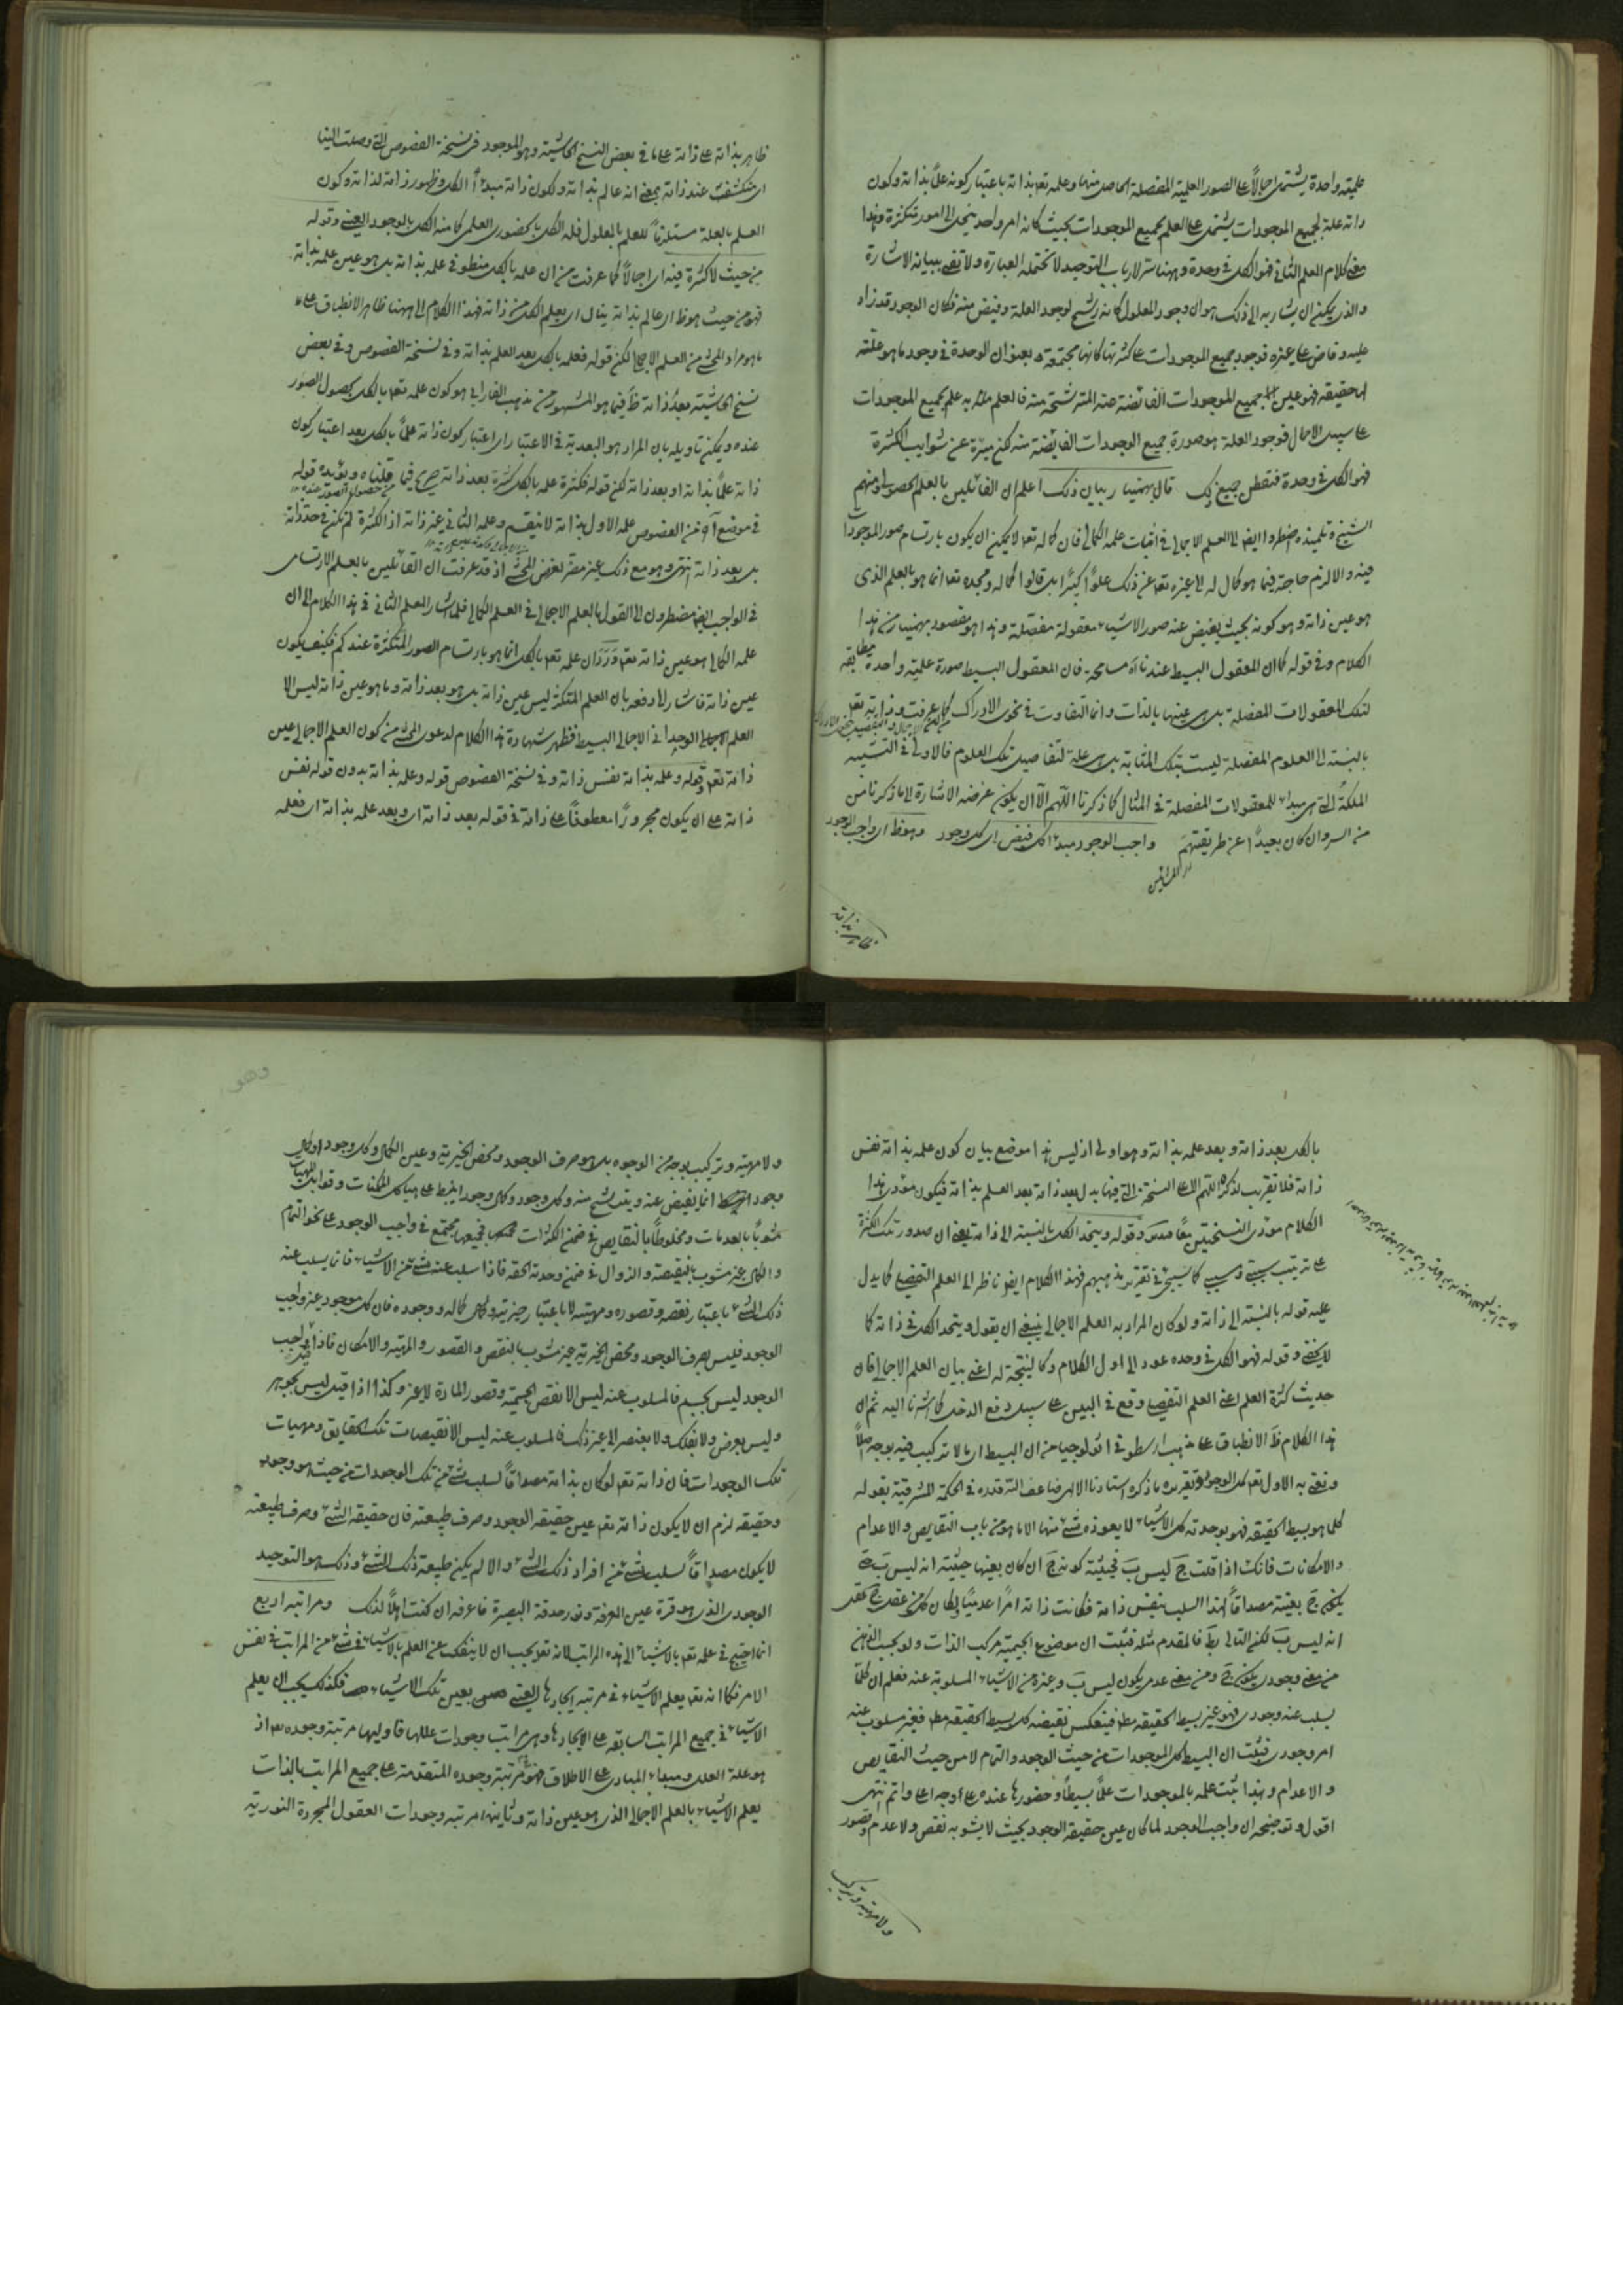 علمية واحدة يشتمل اجمالاً على الصور العلمية المفصلة الحاصل منها وعلمه تعه بذاته باعتبار كونه علماً بذاته وكون
ذاته علة لجميع الموجودات يشتمل على العلم بجميع الموجودات بحيث كانه امر واحد ينحل الى امور متكثرة وهذا
معنى كلام المعلم الثاني فهو الكل في وحدة وههنا سر لارباب التوحيد لا تحتمله العبارة ولا تفي ببيانه الاشارة
والذي يمكن ان يشار به الى ذلك هو ان وجود المعلول كانه رشح لوجود العلة وفيض منه فكان الوجود قد زاد
عليه وفاض على غيره فوجود جميع الموجودات على كثرتها كانها مجتمعة بعنوان الوحدة في وجود ما هو علته
الحقيقه فهو عين جميع الموجودات الفائضة عنه المترشحة منه فالعلم به علم بجميع الموجودات
على سبيل الاجمال فوجود العلة هو صورة جميع الوجودات الفايضة منه لكن مبرّة عن شوايب الكثرة
فهو الكل في وحدة فتفطن قال بهمنيار بيان ذلك اعلم ان القائلين بالعلم الحصولي ومنهم
الشيخ وتلميذه اضطروا ايضا الى العلم الاجمالي في اثبات علمه الكمالي فان كماله تعه لا يمكن ان يكون بارتسام صور الموجودات
فيه والا لزم حاجته فيما هو كمال له الى غيره تعه عن ذلك علوًا كبيرًا بل قالوا كماله ومجده تعه انما هو بالعلم الذي
هو عين ذاته وهو كونه بحيث يفيض عنه صور الاشياء معقولة مفصّلة وهذا هو مقصود بهمنيار من هذا
الكلام وفي قوله كما ان المعقول البسيط عندنا اه مسامحة فان المعقول البسيط صورة علمية واحدة مطابقة
لتلك المعقولات المفصلة بل هي عينها بالذات وانما التفاوت في نحوي الادراك كما عرفت وذاته تعه
بالنسبة الى العلوم المفصلة ليست بتلك المثابة بل هي علة لتفاصيل تلك العلوم فالاولى في التشبيه
الملكةُ التي هي مبداء للمعقولات المفصلة في المثال كما ذكرنا اللّهم الّا ان يكون غرضه الاشارة الى ما ذكرنا من
من السر وان كان بعيدًا عن طريقتهم واجب الوجود مبداء كل فيض اي كل وجود وهو ظ اي واجب الوجود
ظاهر بذاته
ظاهر بذاته على ذاته على ما في بعض النسخ الحاشية وهو الموجود في نسخة الفصوص التي وصلت الينا
اي منكشف عند ذاته بمعنى انه عالم بذاته ولكون ذاته مبداً الكل وظهور ذاته لذاته وكون
العلم بالعلة مستلزماً للعلم بالمعلول فله الكل بالحضور العلمي كما منه الكل بالوجود العيني وقوله
من حيث لا كثرة فيه اي اجمالاً كما عرفت من ان علمه بالكل منطو في علمه بذاته بل هو عين علمه بذاته
فهو من حيث هو ظ اي عالم بذاته ينال اي يعلم الكل من ذاته فهذا الكلام الى ههنا ظاهر الانطباق على
ما هو مراد المحشي من العلم الاجمالي لكن قوله فعلمه بالكل بعد العلم بذاته وفي نسخة الفصوص وفي بعض
نسخ الحاشية بعد ذاته ظ فيما هو المشهور من مذهب الفارابي هو كون علمه تعه بالكل بحصول الصور
عنده ويمكن تاويله بان المراد هو البعدية في الاعتبار اي اعتبار كون ذاته علماً بالكل بعد اعتبار كون
ذاته علماً بذاته او بعد ذاته لكن قوله فكثرة علمه بالكل كثرة بعد ذاته صريح فيما قلناه ويؤيده قوله
في موضع آخر من الفصوص علمه الاول بذاته لا ينقسم وعلمه الثاني عن ذاته اذا تكثر لم تكن في حد ذاته
بل بعد ذاته انتهى وهو مع ذلك غير مضر لغرض المحشي اذ قد عرفت ان القائلين بالعلم الارتسامي
في الواجب ايضا مضطرون الى القول بالعلم الاجمالي في العلم الكمالي فلما اشار المعلم الثاني في هذا الكلام الى ان
علمه الكمالي هو عين ذاته تعه وَرَدَ ان علمه تعه بالكل انما هو بارتسام الصور المتكثرة عندكم فكيف يكون
عين ذاته فاشار الى دفعه بان العلم المتكثر ليس عين ذاته بل هو بعد ذاته وما هو عين ذاته ليس الا
العلم الوحداني الاجمالي البسيط فظهر شهادة هذا الكلام لدعوى المحشي من كون العلم الاجمالي عين
ذاته تعه وقوله وعلمه بذاته نفس ذاته وفي نسخة الفصوص قوله وعلمه بذاته بدون قوله نفس
ذاته على ان يكون مجرورًا معطوفًا على ذاته في قوله بعد ذاته اي وبعد علمه بذاته اي فعلمه
بالكل بعد ذاته وبعد علمه بذاته وهو اولى اذ ليس هذا موضع بيان كون علمه بذاته نفس
ذاته فلا تقريب لذكره اللّهم الا على النسخة التي فيها بدل بعد ذاته بعد العلم بذاته فيكون مؤدى هذا
الكلام مؤدى النسختين معًا وقوله ويتحد الكل بالنسبة الى ذاته يعني ان صدور تلك الكثرة
على ترتيب سببي ومسببي كما سيجئ في تقرير مذهبهم فهذا الكلام ايضا ناظر الى العلم التفصيلي كما يدل
عليه قوله بالنسبة الى ذاته ولو كان المراد به العلم الاجمالي ينبغي ان يقول ويتحد الكل في ذاته كما
لا يخفى وقوله فهو الكل في وحده عود الى اول الكلام وكالنتيجة له اعني بيان العلم الاجمالي فان
حديث كثرة العلم اعني العلم التفصيلي وقع في البين على سبيل دفع الدخل كما اشرنا اليه ثم ان
هذا الكلام ظ الانطباق على مذهب ارسطو في اثولوجيا من ان البسيط اي ما لا تركيب فيه بوجه اصلاً
ونعني به الاول تعه كل الوجود وتقريره ما ذكره استادنا الالهي ضاعف الله قدره في الحكمة المشرقية بقوله
كلما هو بسيط الحقيقه فهو بوحدته كل الاشياء لا يعوزه شئ منها الا ما هو من باب النقايص والاعدام
والامكانات فانك اذا قلت ج ليس ب فحيثية كونه ج ان كان بعينها حيثية انه ليس ب حتى
يكون ج بعينه مصداقاً لهذا السلب بنفس ذاته فكانت ذاته امراً عدمياً ولكان كل من عقل ج عقل
انه ليس ب لكن التالي بط فالمقدم مثله فثبت ان موضوع الجيمية مركب الذات ولو بحسب الذهن
من معنى وجودي يكون ج ومن معنى عدمي يكون ليس ب وغيره من الاشياء المسلوبة عنه فعلم ان كلما
يسلب عنه وجودي فهو غير بسيط الحقيقه مطه فينعكس نقيضه كل بسيط الحقيقه مطه فغير مسلوب عنه
امر وجودي فثبت ان البسيط كل الموجودات من حيث الوجود والتمام لا من حيث النقايص
والاعدام وبهذا يثبت علمه بالموجودات علماً بسيطاً وحضورها عنده على اوجه اعلى واتم انتهى
اقول وتوضيحه ان واجب الوجود لما كان عين حقيقه الوجود بحيث لا يشوبه نقص ولا عدم وقصور
ولا مهية وتركيب
ولا مهية وتركيب بوجه من الوجوه بل هو صرف الوجود ومحض الخيرية وعين الكمال وكل وجود او كمال
وجود انما يفيض عنه ويترشح منه وكل وجود وكمال وجود انبسط على هياكل الممكنات وقوابل المهيات
مشوباً بالعدمات ومخلوطاً بالنقايص في ضمن الكثرات فجميعها مجتمع في واجب الوجود على نحو التمام
والكمال غير مشوب بالنقيصة والزوال في ضمن وحدته الحقه فاذا سلب عنه شئ من الاشياء فانما يسلب عنه
ذلك الشئ باعتبار نقصه وقصوره ومهيته لا باعتبار خيريته وكمال كماله ووجوده فان كل موجود غير واجب
الوجود فليس صرف الوجود ومحض الخيرية غير مشوب بالنقص والقصور والمهية والامكان فاذا قيل واجب
الوجود ليس بجسم فالمسلوب عنه ليس الا نقص الجسمية وقصور المادة لا غير وكذا اذا قيل ليس بجوهر
وليس بعرض ولا بفلك ولا بعنصر الى غير ذلك فالمسلوب عنه ليس الا نقيصات تلك الحقايق ومهيات
تلك الوجودات فان ذاته تعه لو كان بذاته مصداقاً لسلب شئ من تلك الوجودات من حيث هو وجود
وحقيقه لزم ان لا يكون ذاته تعه عين حقيقه الوجود وصرف طبيعته فان حقيقه الشئ وصرف طبيعته
لا يكون مصداقاً لسلب شئ من افراد ذلك الشئ والا لم يكن طبيعة ذلك الشئ وذلك هو التوحيد
الوجودي الذي هو قرة عين المعرفة ونور حدقة البصيرة فاعرفه ان كنت اهلاً لذلك ومراتبه اربع
انما احتيج في علمه تعه بالاشياء الى هذه المراتب لانه تعه يجب ان لا ينفك عن العلم بالاشياء في شئ من المراتب في نفس
الامر فكما انه تعه يعلم الاشياء في مرتبه ايجادها العيني بعين تلك الاشياء فكذلك يجب ان يعلم
الاشياء في جميع المراتب السابقه على الايجاد وهي مراتب وجودات عللها فاوليها مرتبة وجوده تعه اذ
هو علة العلل ومبداء المبادي على الاطلاق فهو في مرتبة وجوده المتقدمة على جميع المراتب بالذات
يعلم الاشياء بالعلم الاجمالي الذي هو عين ذاته وثانيها مرتبه وجودات العقول المجردة النورية
وهو